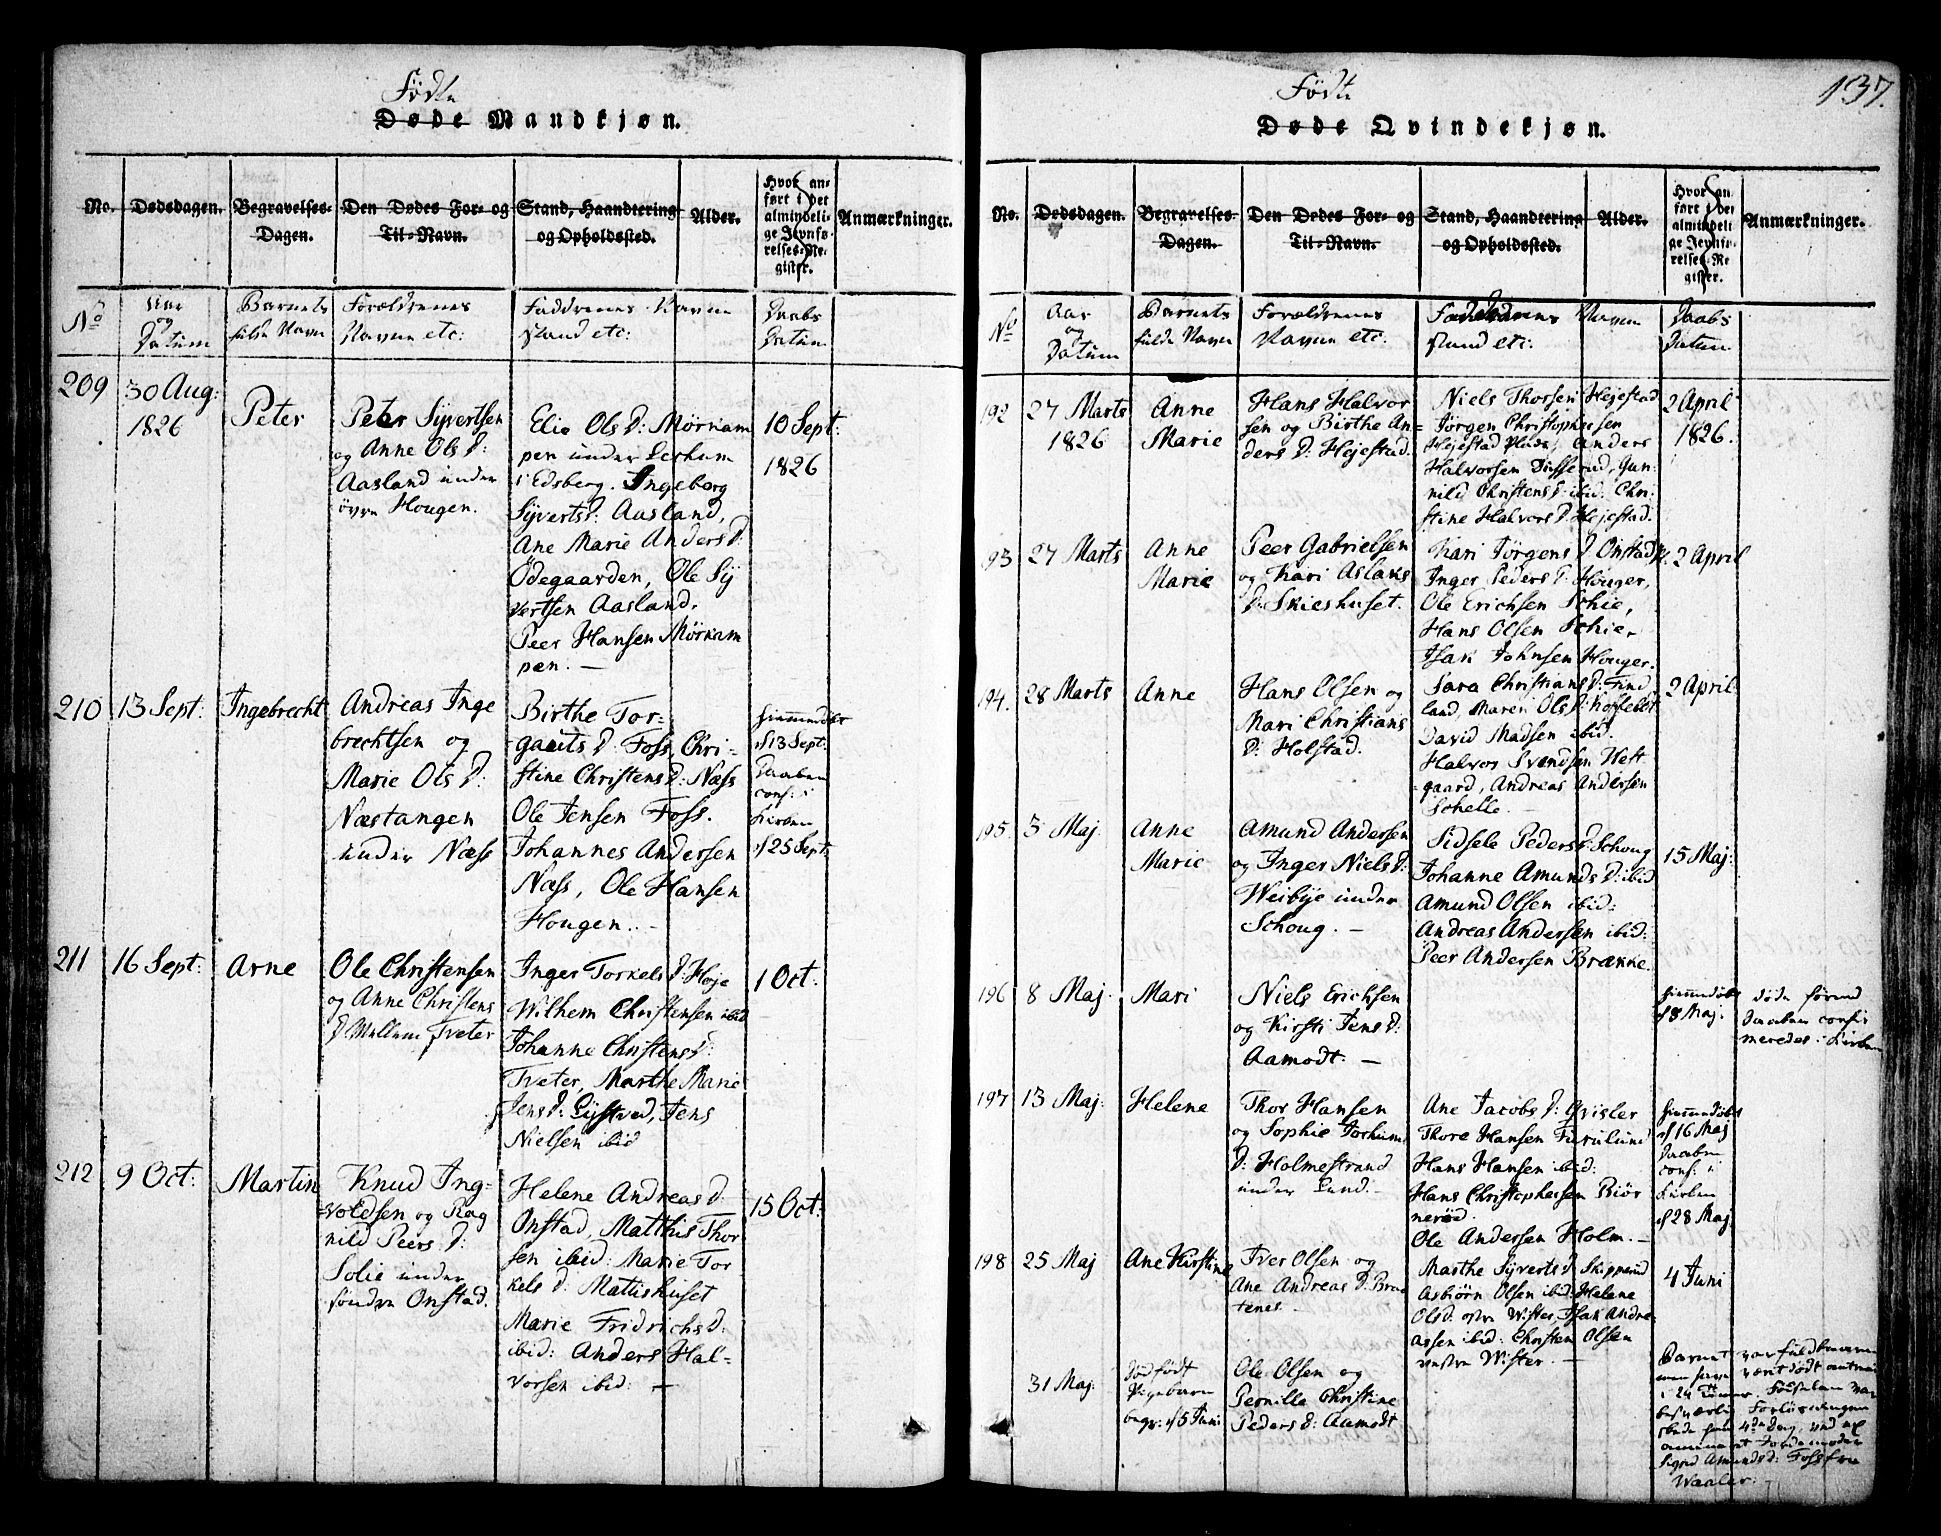 Födte
Døde Mandkjøn.
No.
Dødsdagen.
Begravelses-
Dagen.
Den Dødes For- og
Til-Navn.
Stand, Haandtering
og Opholdssted.
Alder.
Hvor an-
ført i det
almindeli-
ge Jevnfø-
relses-Re-
gister.
Anmærkninger.
No
Aar
og
Datum
Barnets
fulde Navn
Forældrenes
Navne etc:
Faddrenes Navne
stand etc:
Daabs
Datum
209
30 Aug:
1826
Peter
Peter Syvertsen
og Anne Ols D:
Aasland under
övre Hougen.
Elie Ols D: Mörkam
pen under Leshum
i Edsberg. Ingeborg
Syverts D: Aasland,
Ane Marie Anders D:
Ödegaarden, Ole Sy
vertsen Aasland.
Peer Hansen Mörkam
pen. —
10 Sept:
1826
210
13 Sept:
Ingebrecht
Andreas Inge
brechtsen og
Marie Ols D:
Næstangen
under Næss
Birthe Tor-
gauts D: Foss, Chri-
stine Christens D: Næss
Ole Jensen Foss.
Johannes Andersen
Næss, Ole Hansen
Hougen. —
hiemmedöbt
d 13 Sept:
Daaben
conf: i
Kirken
d 25 Sept:
211
16 Sept:
Arne
Ole Christensen
og Anne Christens
D: Mellem Tveter
Inger Torkels D: Höje
Wilhem Christensen ibid
Johanne Christens D:
Tveter, Marthe Marie
Jens D: Lystved, Jens
Nielsen ibid
1 Oct:
212
9 Oct:
Martin
Knud Ing-
voldsen og Rag
nild Peers D:
Solie under
söndre Onstad.
Helene Andreas D:
Onstad, Matthis Thor
sen ibid: Marie Tor
kels D: Mattishuset
Marie Fridrichs D:
ibid: Anders Hal-
vorsen ibid: —
15 Oct:
Födte
137.
Døde Qvindekjøn.
No.
Dødsdagen.
Begravelses-
Dagen.
Den Dødes For- og
Til-Navn.
Stand, Haandtering
og Opholdssted.
Alder.
Hvor an
ført i det
almindeli
ge Jevnfø-
relses-Re
gister.
Anmærkninger.
No
Aar
og
Datum
Barnets
fulde Navn
Forældrenes
Navne etc:
Faddrenes Navne
stand etc:
Daabs
Datum.
192
27 Marts
1826
Anne
Marie
Hans Halvor
sen og Birthe An-
ders D: Hejestad.
Niels Thorsen Hejestad
Jörgen Christophersen
Hejestad Plads, Anders
Halvorsen Dufserud, Gun-
nild Christens D: ibid: Chri-
stine Halvors D: Hejestad.
2 April
1826.
93
27 Marts
Anne
Marie
Peer Gabrielsen
og Kari Aslaks
D: Skieshuset.
Kari Jörgens D: Onstad
Inger Peders D: Houger,
Ole Erichsen Schie,
Hans Olsen Schie,
Isari Johnsen Houger.
2 April
194.
28 Marts
Anne
Hans Olsen og
Mari Christians
D: Holstad.
Sara Christians D: Find
land, Maren Ols D: Koppebet
David Madsen ibid.
Halvor Svendsen Heft
gaard, Andreas Andersen
Schelle. —
2 April
195.
5 Maj.
Anne
Marie
Amund Andersen
og Inger Niels D:
Weibye under
Schoug. —
Sidsele Peders D: Schoug
Johanne Amunds D: ibid
Amund Olsen ibid:
Andreas Andersen ibid:
Peer Andersen Brække.
15 Maj:
196
8 Maj.
Mari
Niels Erichsen
og Kirsti Jens D:
Aamodt. —
hiemmedöbt
d 8 Maj.
döde förend
Daaben confir
meredes i Kirken
197
13 Maj:
Helene
Thor Hansen
og Sophie Torhiums
D: Holmestrand
under Lund. —
Ane Jacobs D: Gvisler
Thore Hansen Furulund
Hans Hansen ibid:
Hans Christophersen Biör
neröd.
Ole Andersen Holm. —
hiemmedöbt
d 16 Maj
Daaben
conf: i
Kirken
d 28 Maj.
198
25 Maj
Ane Kirstine
Iver Olsen og
Ane Andreas D: Braa
tenes —
Marthe Syverts D: Skipperud
Asbiörn Olsen ibid: Helene
Ols D: östre Wister, Isak Andre-
assen ibid: Christen Olsen
vestre Wister. —
4 Juni
31 Maj.
Dödfödt
Pigebarn
begr: d 5 Juni
Ole Olsen og
Pernille Christine
Peders D: Aamodt
Barnet var fuldbaaren
men havde vært dödt omtrent
i 24 Timer. Födselen var
besværlig Forlösningen
skede paa 4de Dag, ved ex
amineret Jordemoder
Sigrid Amunds D: Foss fra
Waaler. —